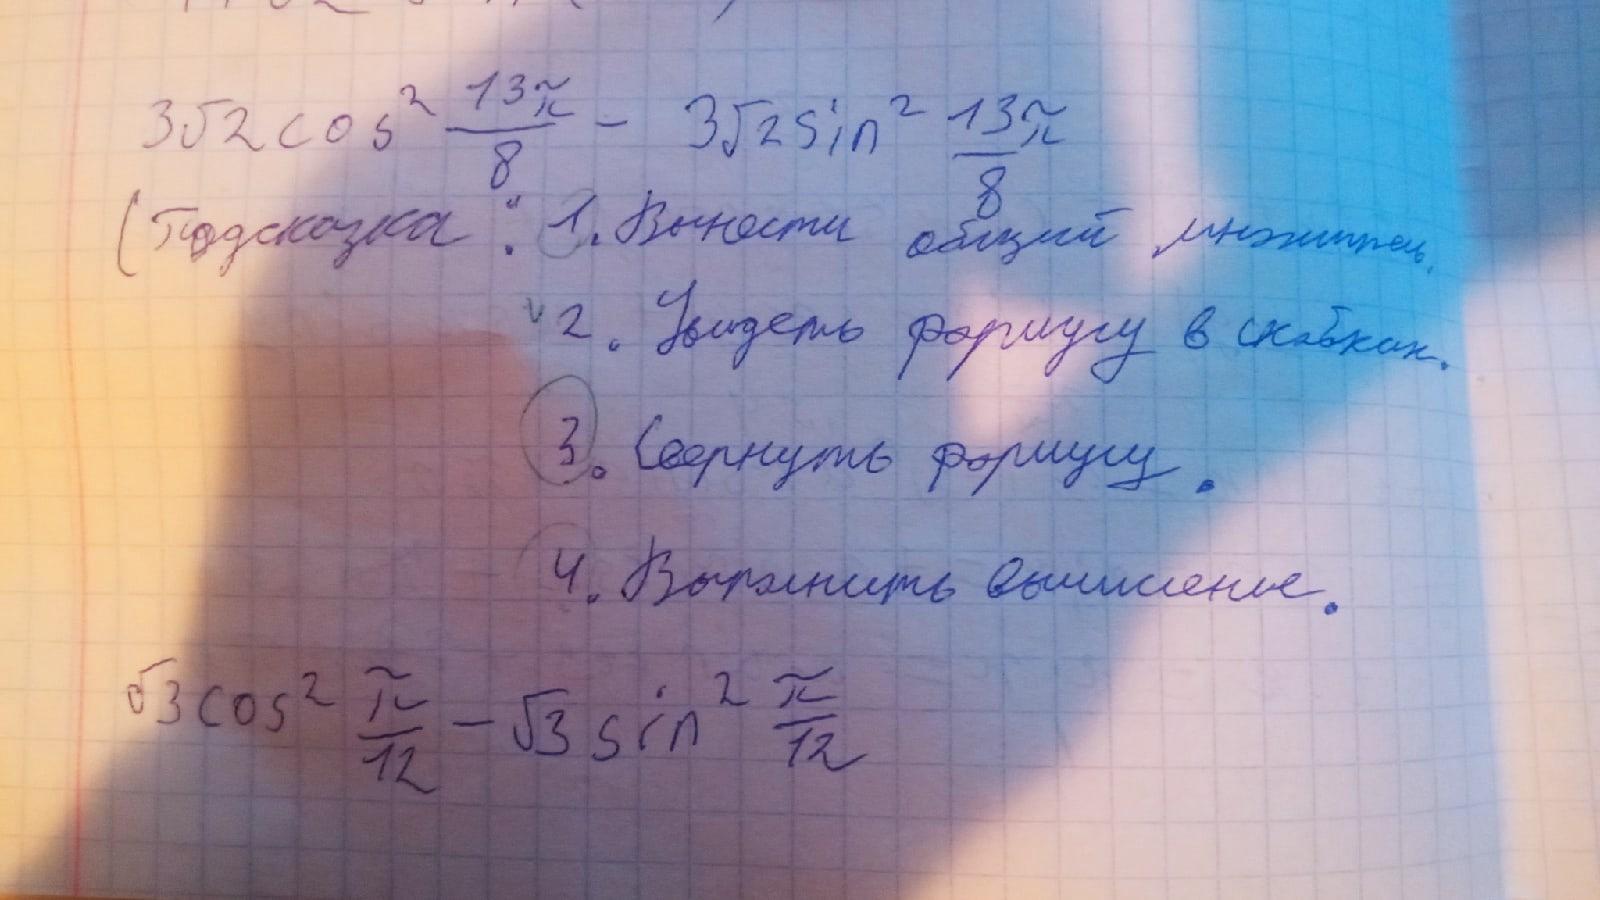 3√2 cos² 13π/8 - 3√2 sin² 13π/8
(Подсказка: 1. Вынести общий множитель.
2. Увидеть формулу в скобках.
3. Свернуть формулу.
4. Выполнить вычисление.
√3 cos² π/12 - √3 sin² π/12